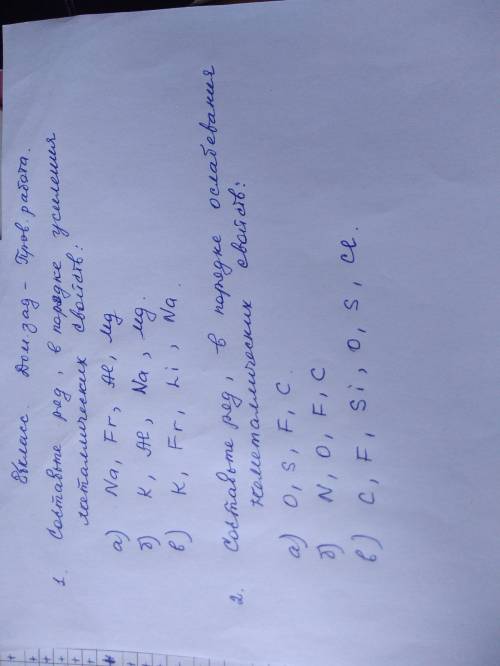 8класс Дом.зад - Пров. работа.
1. Составьте ряд, в порядке усиления
металлических свойств:
а) Na, Fr, Al, Mg
б) K, Al, Na, Mg.
в) K, Fr, Li, Na.
2. Составьте ряд, в порядке ослабевания
неметаллических свойств:
а) O, S, F, C.
б) N, O, F, C
в) C, F, Si, O, S, Cl.